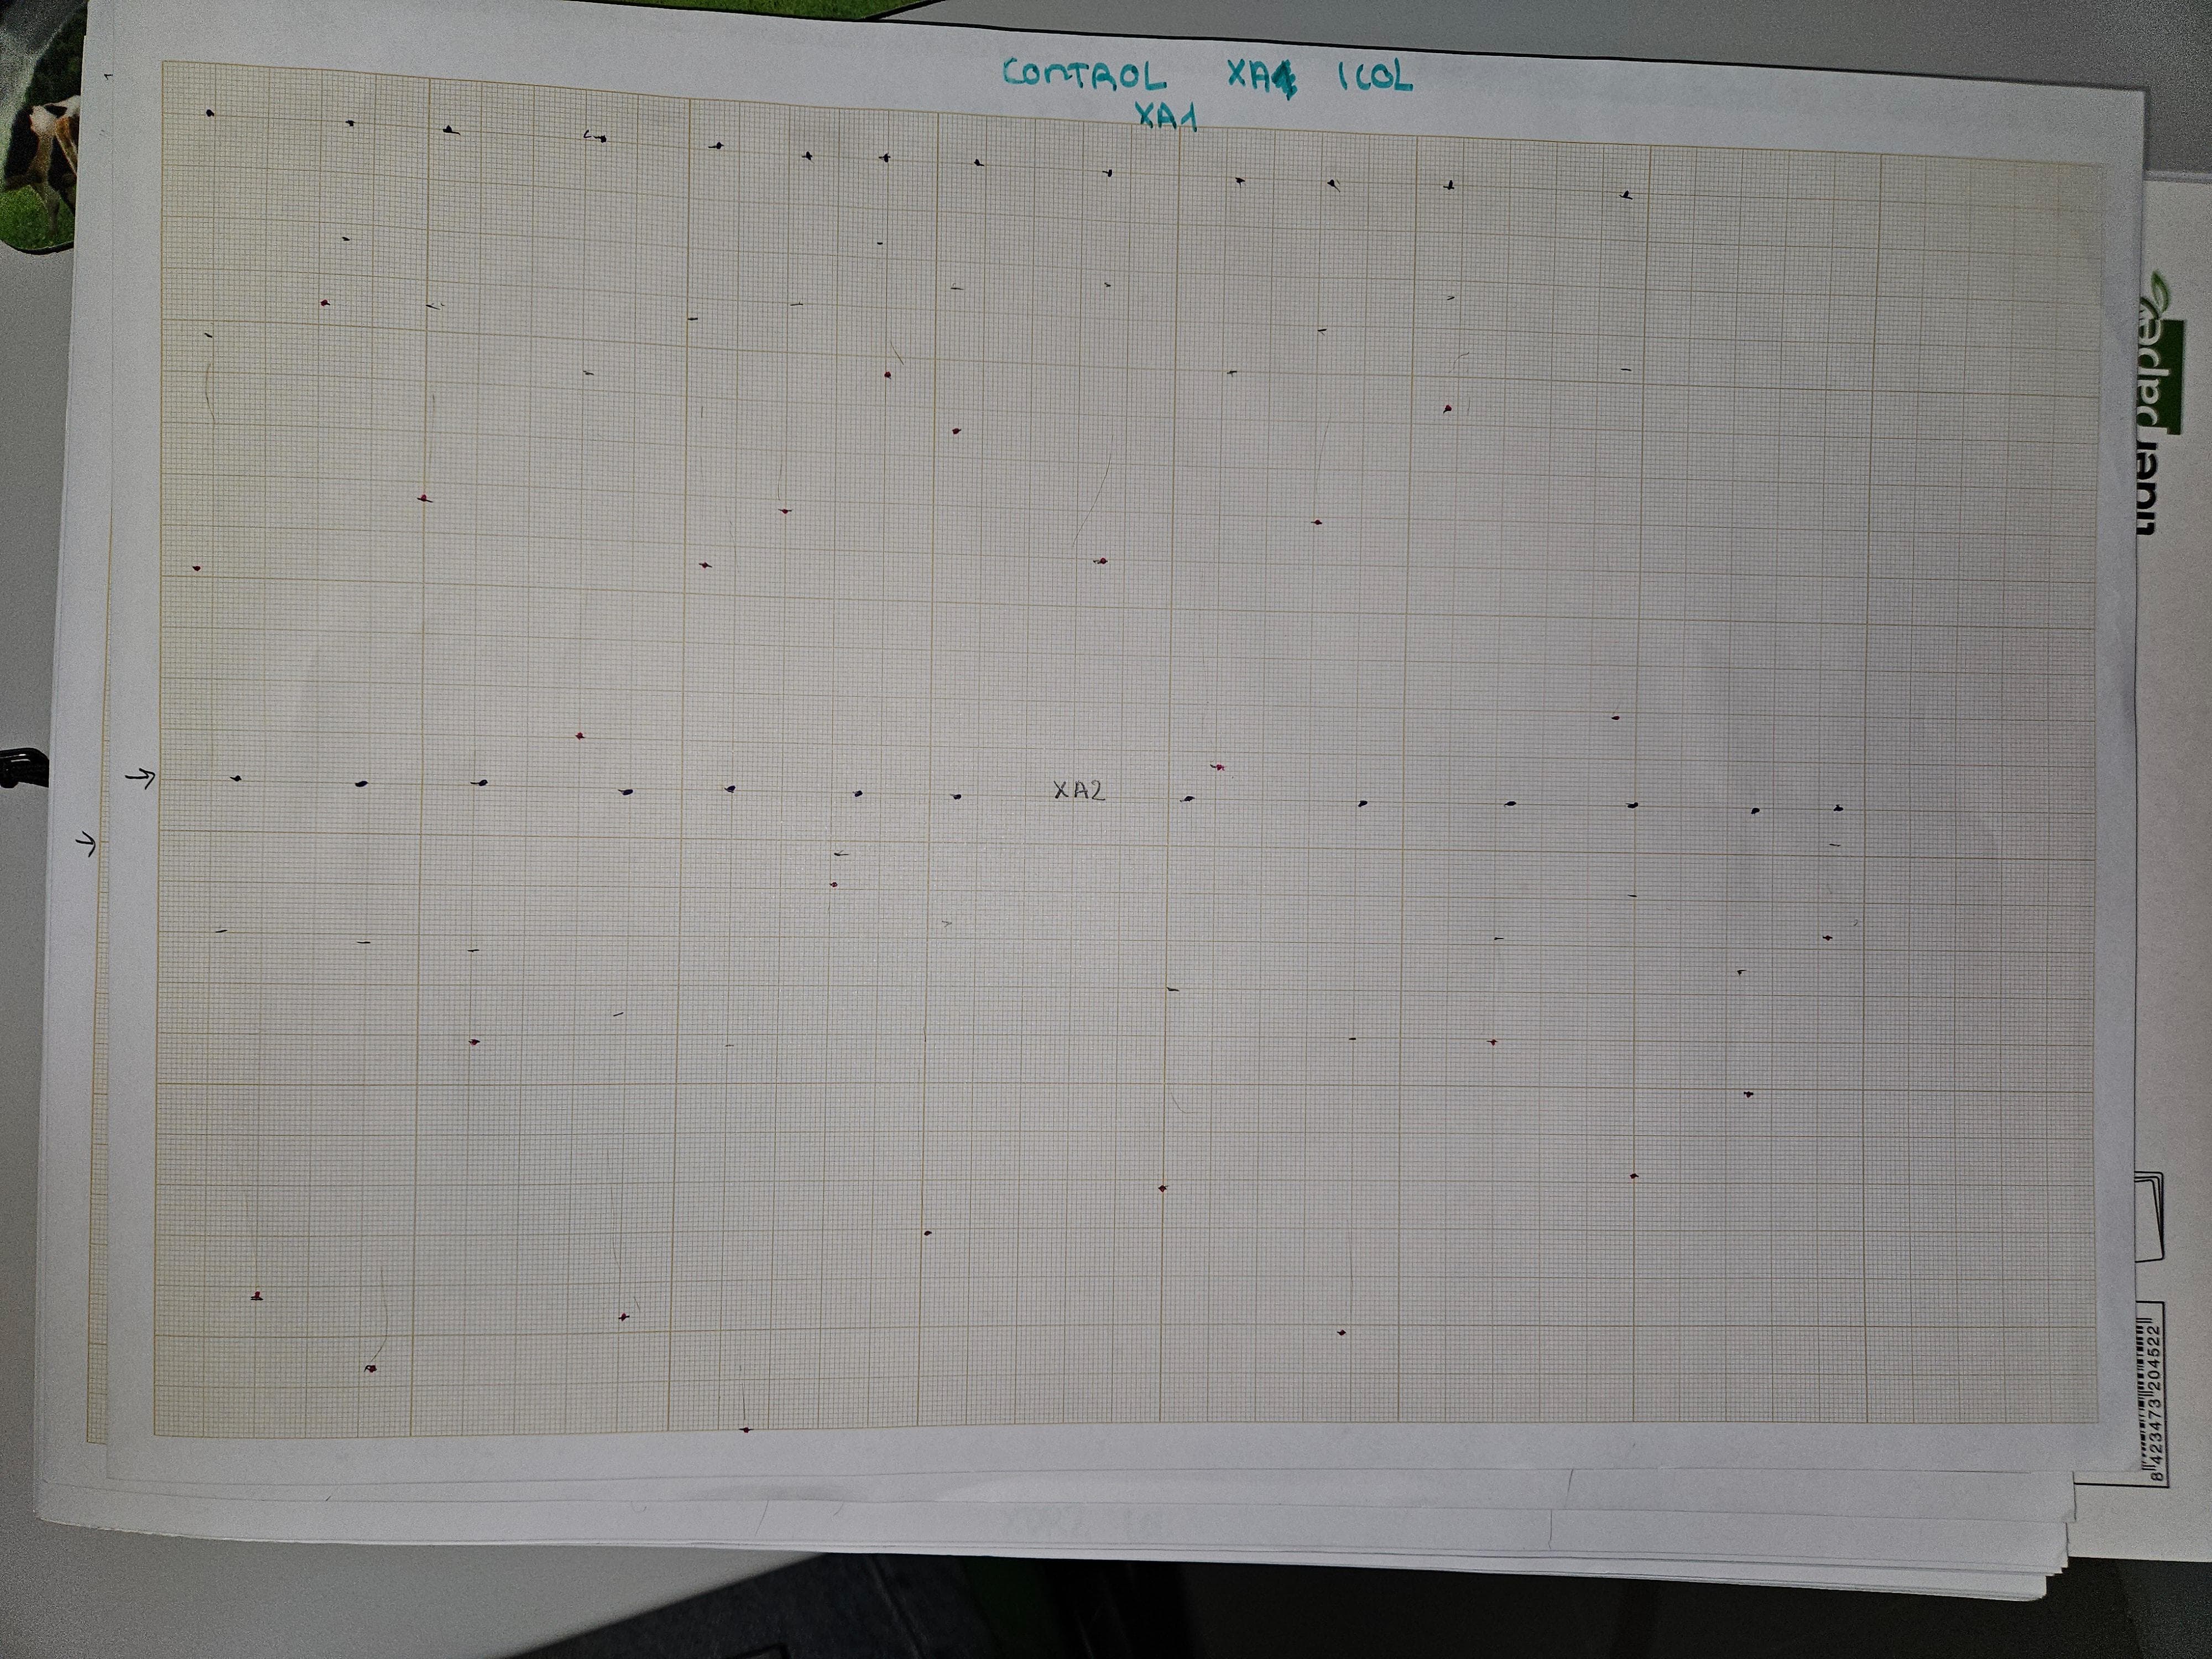 CONTROL XA1 1COL
XA1
XA2
liderpapel
8 423473 204522